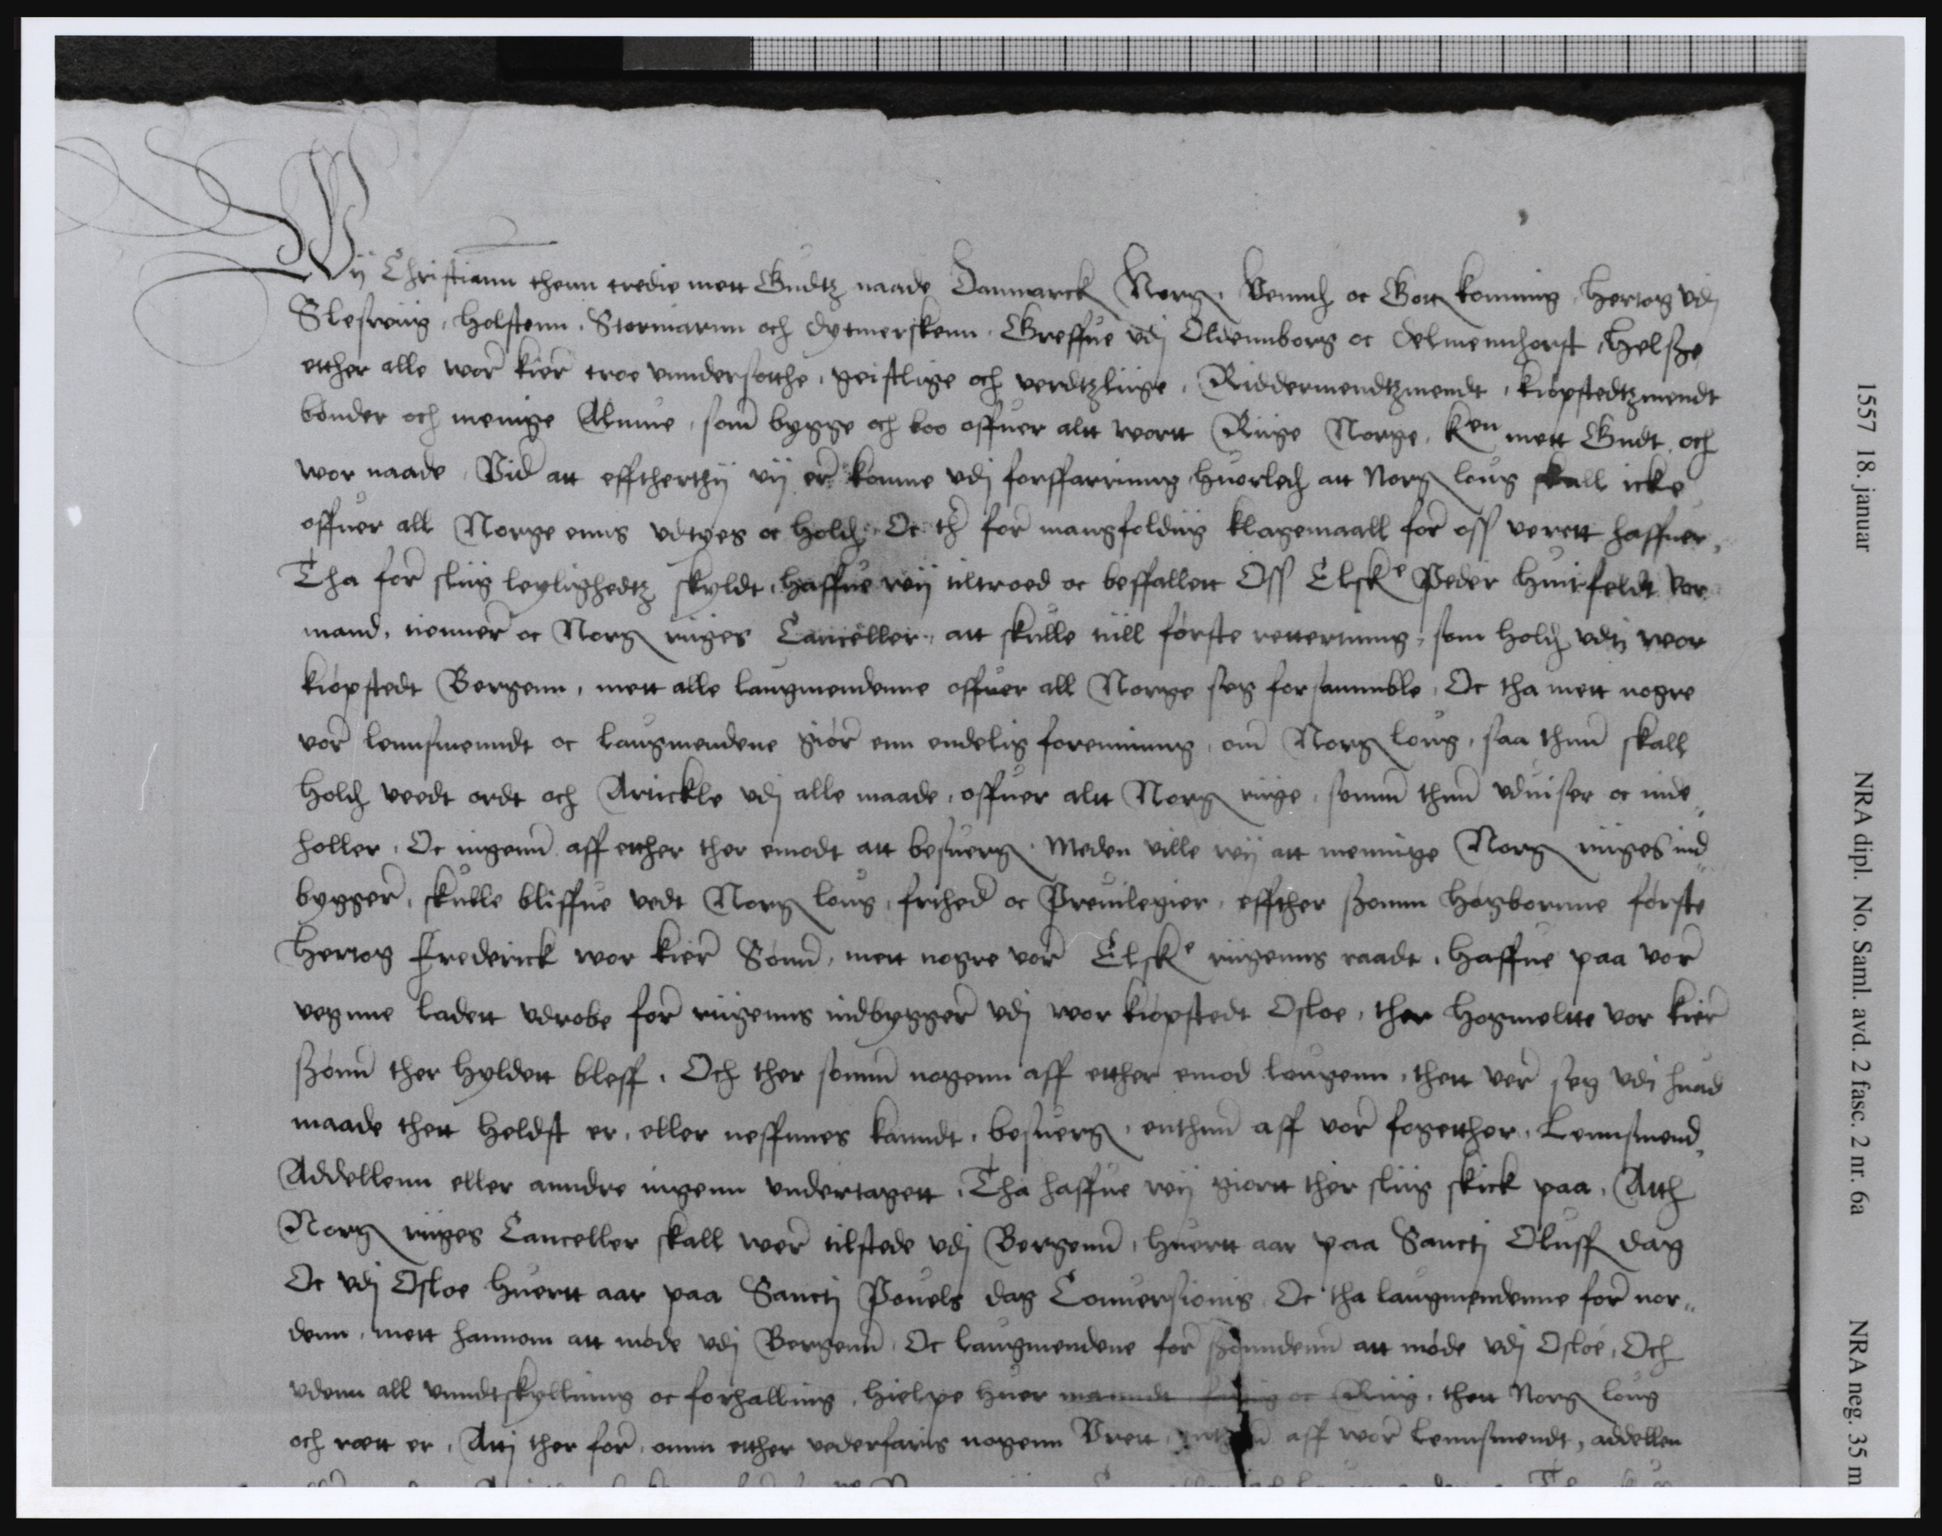 Wij Christiann thenn tredie mett Gudtz naade Danmarck Norg Vennd oc Gott konning, Hertog vdj
Slesswiig, Holstenn, Stormarnn och Dytmerskenn, Greffue vdj Oldennborg oc Delmennhorst, Helsze
etther alle wor kier troe vnndersotthe, geistlige och verdtzliige, Riddermendtzmendt, kiøpstedtzmendt
bønder och menige Almue, som bygge och boo offuer altt wortt Riige Norge, ken mett Gudt och
wor naade, Vid att efftherthij vij er komme vdj forffarrinng huorled att Norg loug skall icke
offuer all Norge enns vdtyes oc hold, Oc ther for mangfoldiig klagemaall for oss verett haffuer,
Tha for sliig leylighedtz skyldt, haffue wij tiltroed oc beffallett Oss Elske Peder Huitfeldt vor
mand, tienner oc Norg riiges Canceller, att skulle tiill første rettertinng, som hold vdij wor
kiøpstedt Bergenn, mett alle laugmendenne offuer all Norge seg forsammble, Oc tha mett nogre
vor lennsmenndt oc laugmendene giør enn endelig forenninng, om Norg loug, saa thnn skall
hold veedt ordt och Artickle vdj alle maade, offuer altt Norg riige, somm thnn vduiser oc inde„
holler, Oc ingenn aff etther ther emodt att besuerg, Meden ville wij att menninge Norg riiges ind„
bygger, skulle bliffue vedt Norg loug, frihed oc Preuilegier, effther szomm høgbornne første
Hertog Frederick wor kier Sønn, mett nogre vor Elske riigenns raadt, Haffue paa vor
vegnne ladett vdrobe for riigenns indbygger vdj wor kiøpstedt Osloe, ther Hogmeltte vor kier
szønn ther hyldett bleff, Och ther somm nogenn aff etther emod lougenn, thett ver seg vdi huad
maade thett heldst er, eller neffnnes kanndt, besuerg, enthnn aff vor fogetther, Lennsmend„
Addellenn eller anndre ingenn vndertagett, Tha haffue wij giortt ther sliig skick paa, Atth
Norg riiges Canceller skall wer tilstede vdj Bergenn, huertt aar paa Sancti Oluff dag
Oc vdj Osloe huertt aar paa Sancti Pouels dag Conuersionis, Oc tha laugmendenne for nor„
denn, mett hannom att møde vdj Bergenn, Oc laugmendene for szønndenn att møde vdj Osloe, Och
vdenn all vnndtskyllning oc forhalling, hielpe huer manndt fattig oc Riig, thett Norg loug
och rætt er, Atti ther for, omm etther vederfaris nogenn Vrett, enthnn aff wor lennsmendt, addellen
1557 18. januar NRA dipl. No. Saml. avd. 2 fasc. 2 nr. 6a NRA neg. 35 m